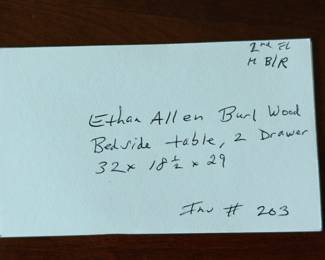 2nd FL
M B/R
Ethan Allen Burl Wood
Bedside table, 2 Drawer
32 x 18 1/2 x 29
Inv # 203